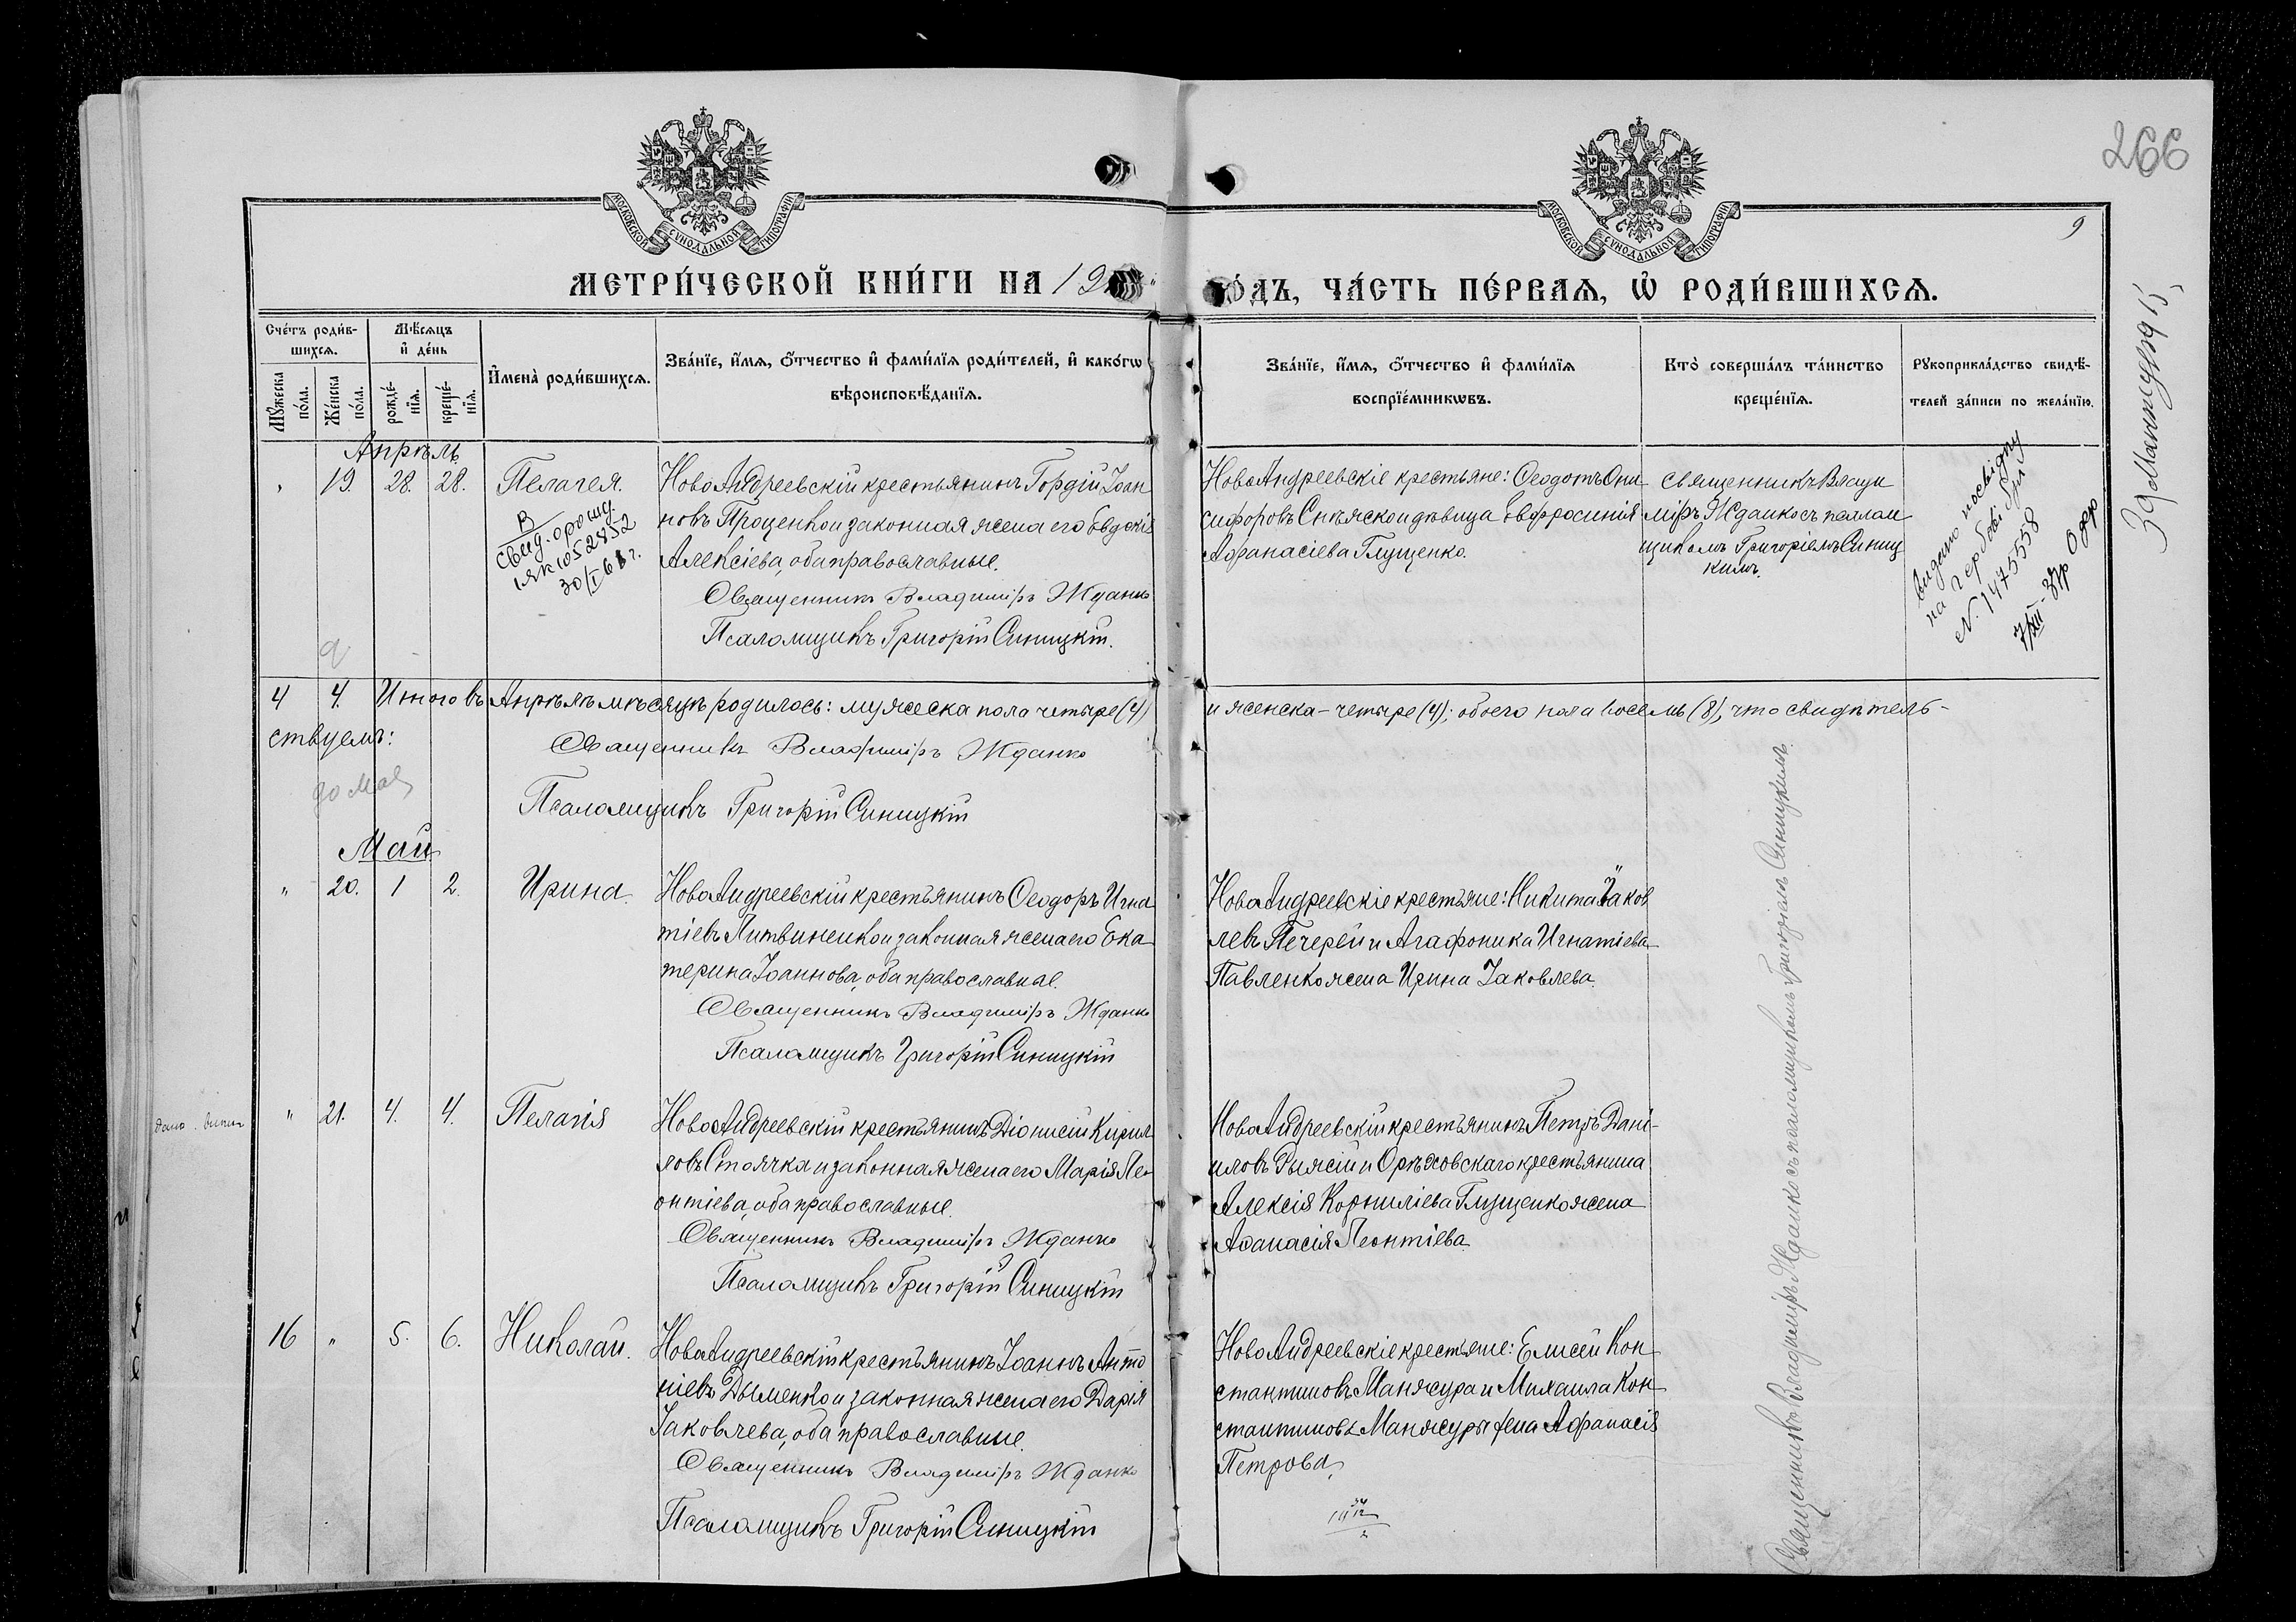 266
9
МОСКОВСКОЙ СѴНОДАЛЬНОЙ ТИПОГРАФІИ
МОСКОВСКОЙ СѴНОДАЛЬНОЙ ТИПОГРАФІИ
МЕТРИ́ЧЕСКОЙ КНИ́ГИ НА 19
ГО́ДЪ, ЧА́СТЬ ПЕ́РВАѦ, Ѡ҆ РОДИ́ВШИХСѦ.
Сче́тъ роди́в-
шихсѧ.
Мѣ́сѧцъ
и҆ де́нь
И҆мена̀ роди́вшихсѧ.
Зва́нїе, и҆́мѧ, ѻ҆́тчество и҆ фами́лїѧ роди́телей, и҆ како́гѡ
вѣроисповѣ́данїѧ.
Зва́нїе, и҆́мѧ, ѻ҆́тчество и҆ фами́лїѧ
воспрїе́мникѡвъ.
Кто̀ соверша́лъ та́инство
креще́нїѧ.
Рꙋкоприкла́дство свидѣ́-
телей за́писи по жела́нїю.
Мꙋ́жеска
по́ла.
Же́нска
по́ла.
рожде́-
нїѧ.
креще́-
нїѧ.
Апрѣль
19. 28. 28. Пелагея.
В
свид. о рожд.
ІЯК 1052852
30/I 68 г.
НовоАндреевскій крестьянинъ Гордій Іоан
новъ Проценко и законная жена его Евдокія
Алексіева, оба православные.
Священникъ Владиміръ Жданко
Псаломщикъ Григорій Синицкій.
НовоАндреевскіе крестьяне: Ѳеодотъ Они
сифоровъ Снѣжко и дѣвица Евфросинія
Афанасіева Глущенко.
священникъ Влади
міръ Жданко съ псалом
щикомъ Григоріемъ Синиц
кимъ.
видано посвідку
на
N. 1475558
4 4. Итого въ Апрѣлѣ мѣсяцѣ родилось: мужеска пола четыре (4)
и женска - четыре (4); обоего пола восемь (8), что свидѣтель-
ствуемъ:
Священникъ Владиміръ Жданко
Псаломщикъ Григорій Синицкій
до Мая
Май
" 20. 1 2. Ирина.
НовоАндреевскій крестьянинъ Ѳеодоръ Игна
тіевъ Литвиненко и законная жена его Ека
терина Іоаннова, оба православные.
Священникъ Владиміръ Жданко
Псаломщикъ Григорій Синицкій
НовоАндреевскіе крестьяне: Никита Яков
левъ Печерей и Агафоника Игнатіева
Павленко жена Ирина Іаковлева.
дано
" 21. 4. 4. Пелагія
НовоАндреевскій крестьянинъ Діонисій Кирил
ловъ Стоячка и законная жена его Марія Ле
онтіева, оба православные.
Священникъ Владиміръ Жданко
Псаломщикъ Григорій Синицкій
НовоАндреевскій крестьянинъ Петръ Дані-
иловъ Рыжій и Орѣховскаго крестьянина
Алексія Корниліева Глущенко жена
Аѳанасія Леонтіева
16 " 5. 6. Николай.
НовоАндреевскій крестьянинъ Іоаннъ Анто
ніевъ Дыменко и законная жена его Дарія
Іаковлева, оба православные.
Священникъ Владиміръ Жданко
Псаломщикъ Григорій Синицкій
НовоАндреевскіе крестьяне: Елисей Кон
стантиновъ Манжура и Михаила Кон
стантинова Манжуры жена Афанасія
Петрова.
Священникъ Владиміръ Жданко съ псаломщикомъ Григоріемъ Синицкимъ.